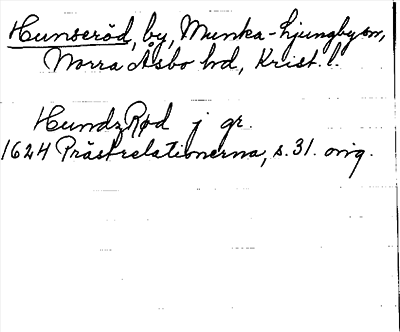 Hunseröd, by, Munka-Ljungby sn,
Norra Åsbo hd, Krist. l.
HundzRød j gr.
1624 Prästrelationerna, s. 31. orig.